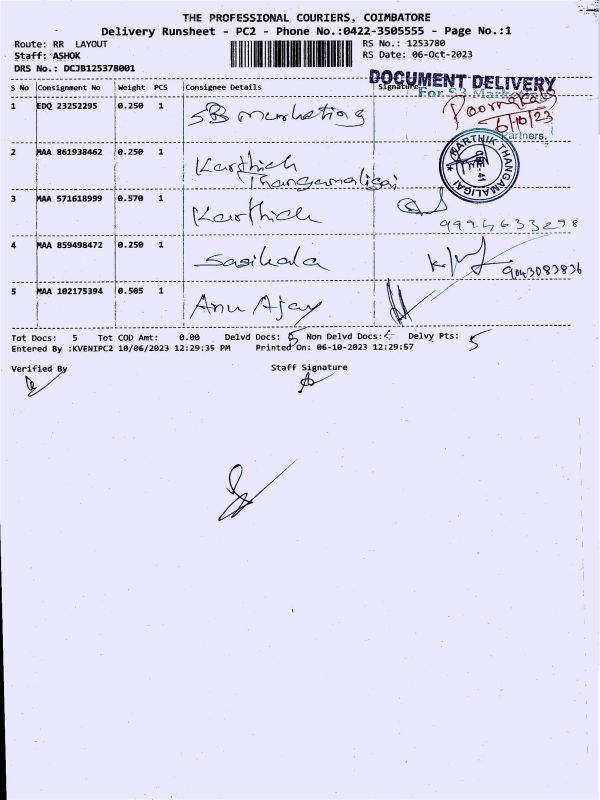 THE PROFESSIONAL COURIERS, COIMBATORE
Delivery Runsheet - PC2 - Phone No.:0422-3505555 - Page No.:1
Route: RR LAYOUT RS No.: 1253780
Staff: ASHOK RS Date: 06-Oct-2023
DRS No.: DCJB125378001
DOCUMENT DELIVERY
S No Consignment No Weight PCS Consignee Details Signature
For S3 Marketing
1 EDQ 23252295 0.250 1 SB marketing
6/10/23
Partners.
2 MAA 861938462 0.250 1 Karthick Thangamaligai
KARTHIK THANGAMALIGAI
3 MAA 571618999 0.570 1 Karthick
4 MAA 859498472 0.250 1 Sasikala 9043083836
5 MAA 102175394 0.505 1 Anu Ajay
Tot Docs: 5 Tot COD Amt: 0.00 Delvd Docs: 5 Non Delvd Docs: Delvy Pts: 5
Entered By :KVENIPC2 10/06/2023 12:29:35 PM Printed On: 06-10-2023 12:29:57
Verified By Staff Signature